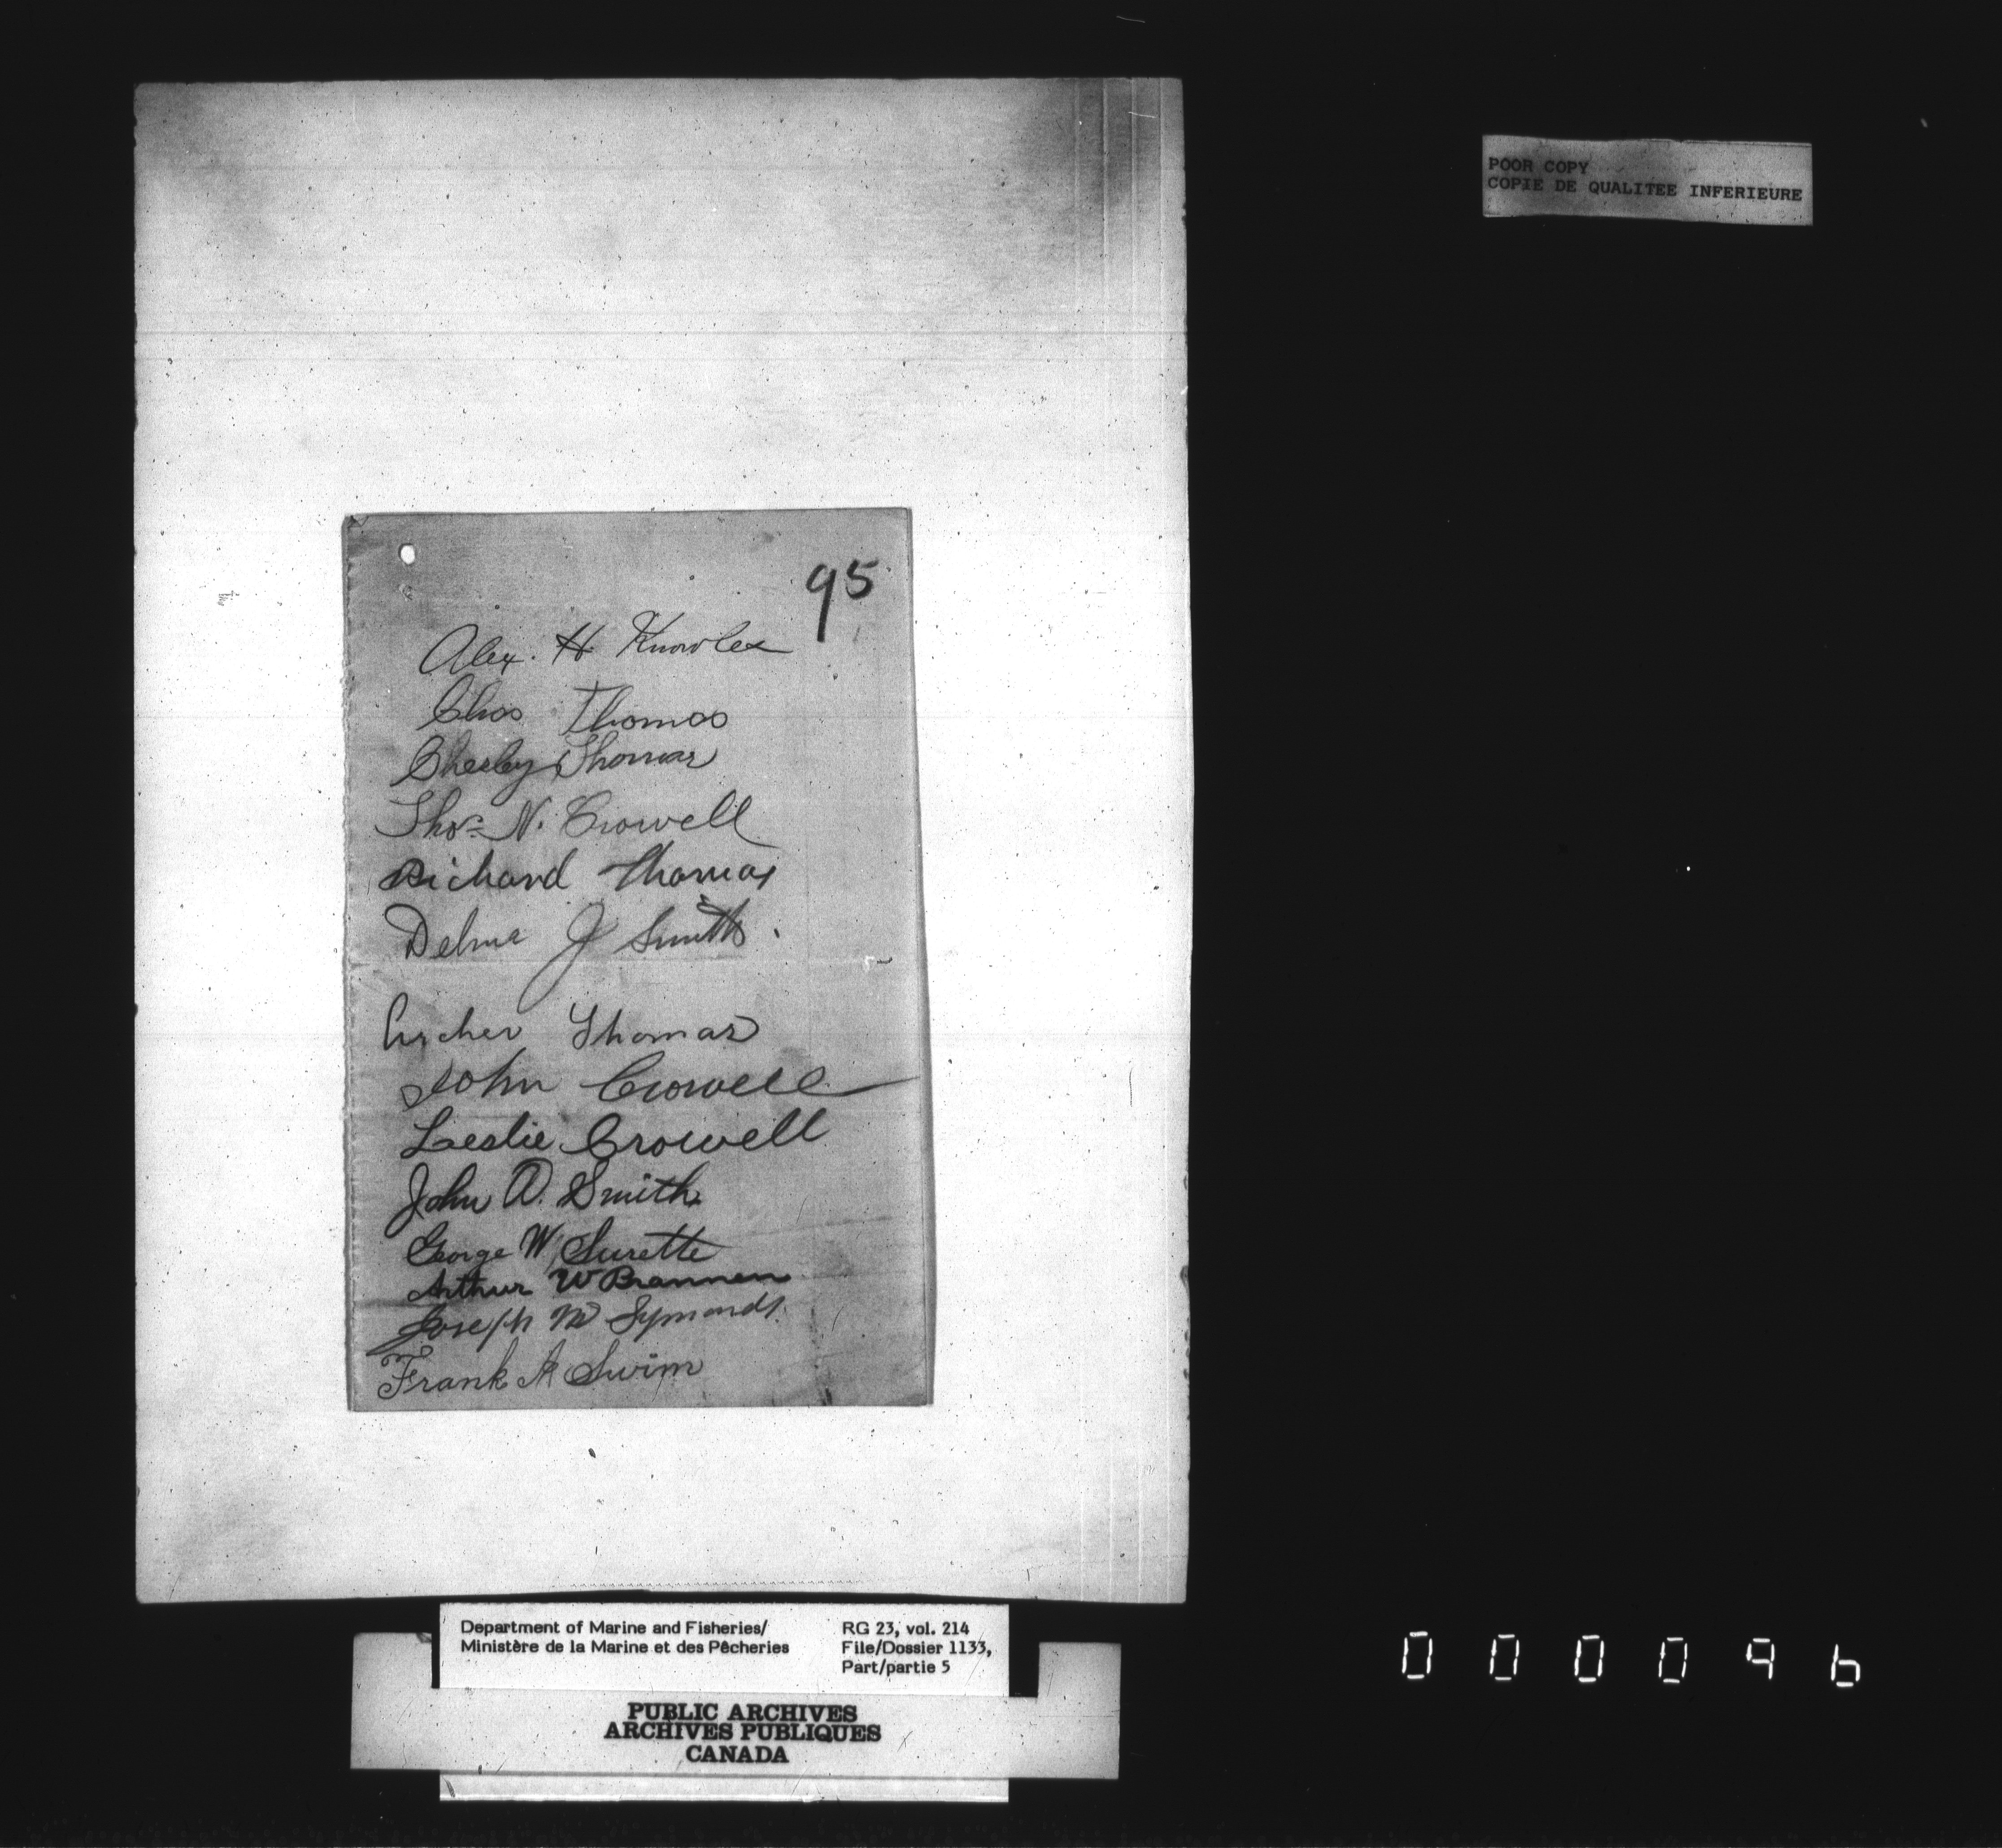 POOR COPY
COPIE DE QUALITEE INFERIEURE
95
Alex. H. Knowles
Chas Thomas
Chesley Thomas
Thos. N. Crowell
Richard Thomas
Delma J Smith.
Archer Thomas
John Crowell
Leslie Crowell
John A. Smith
George W Surette
Arthur W Brannen
Joseph M Symonds
Frank A Swim
Department of Marine and Fisheries/
Ministère de la Marine et des Pêcheries
RG 23, vol. 214
File/Dossier 1133,
Part/partie 5
PUBLIC ARCHIVES
ARCHIVES PUBLIQUES
CANADA
000096